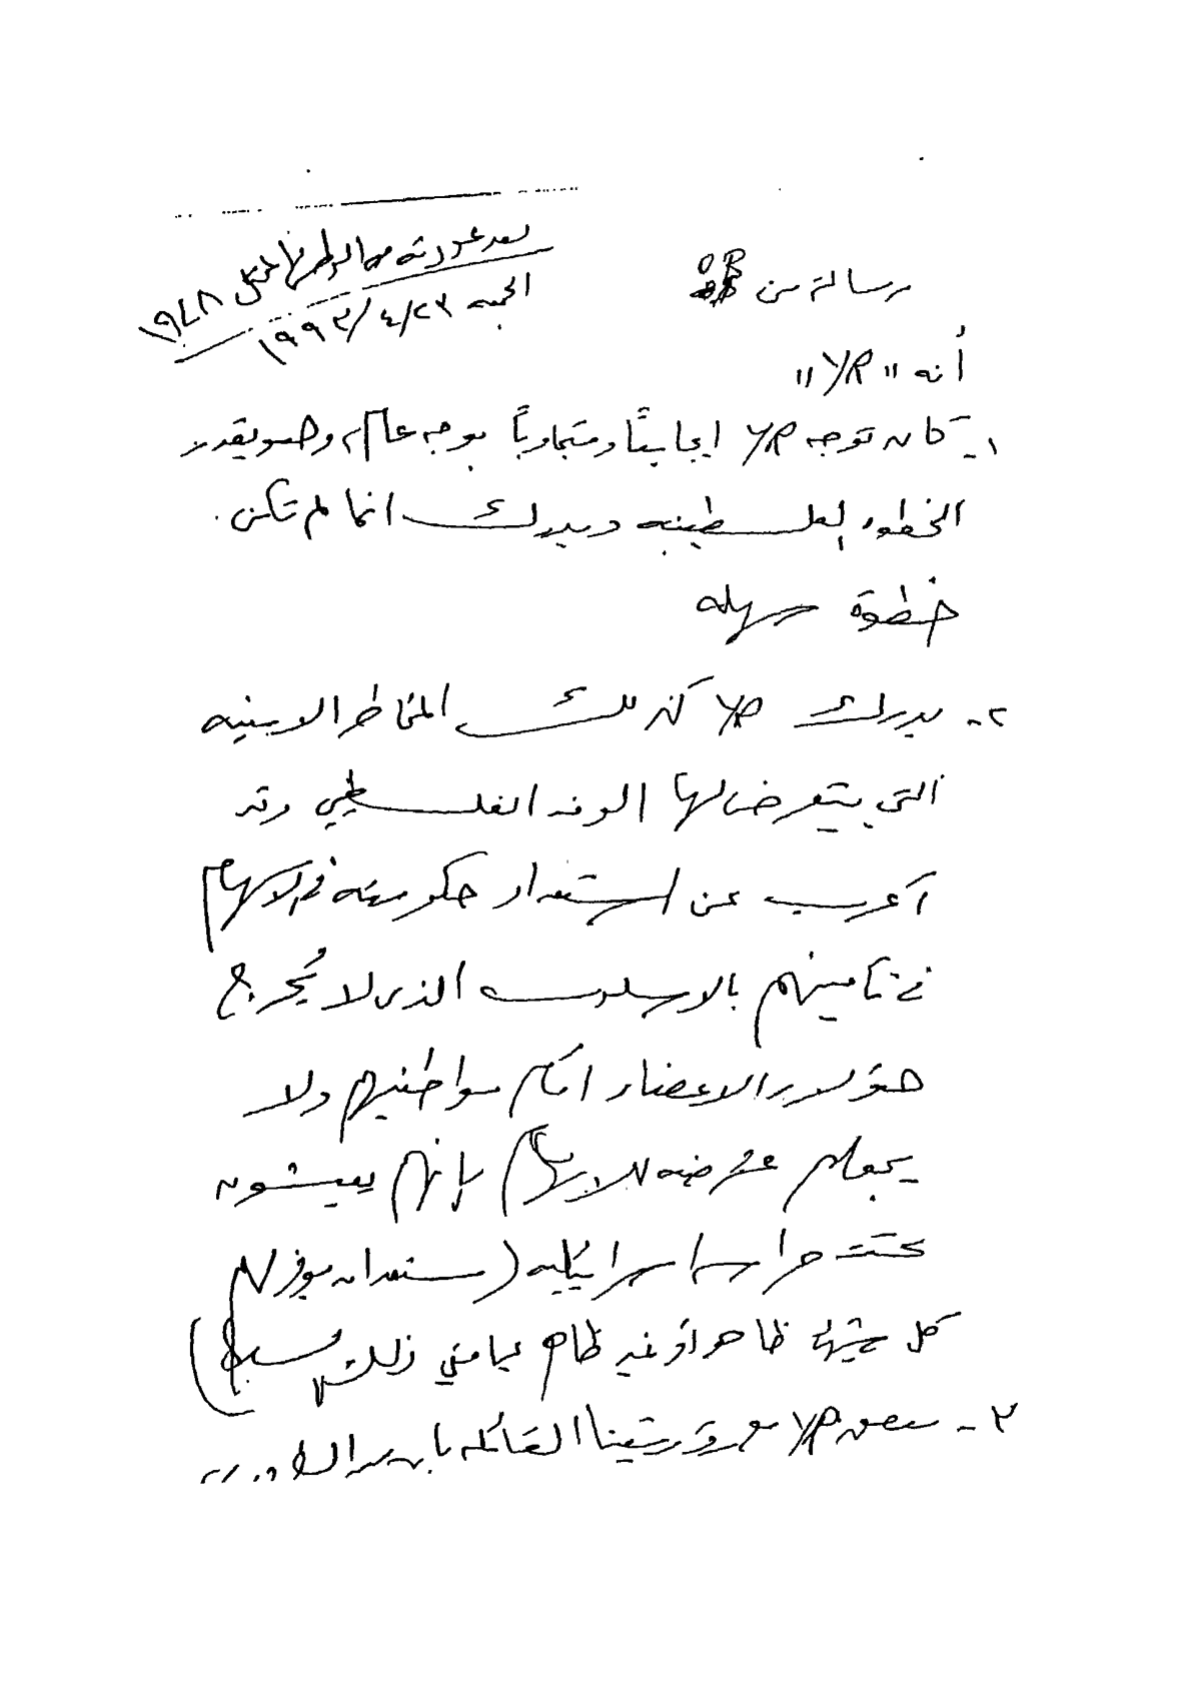 بعد عودته من الوطن المحتل ١٩٤٨
الجمعه ٢٣/٤/١٩٩٣
رسالة من OR
أنه "YR"
١- كان توجه YR ايجابيًا ومتجاوبًا بوجه عام، وهو يقدر
الخطوه الفلسطينيه ويدرك انها لم تكن
خطوة سهله
٢- يدرك YR كذلك المخاطر الامنيه
التي يتعرض لها الوفد الفلسطيني وقد
أعرب عن استعداد حكومته في الاسهام
في تأمينهم بالاسلوب الذي لا يُحرج
هؤلاء الاعضاء امام مواطنيهم ولا
يجعلهم عرضه للاتهام بأنهم يعيشون
تحت حراسه اسرائيليه (مستعد ان يوفر لهم
كل شيء ظاهر أو غير ظاهر بما في ذلك
٣- YR مع القائله بأن